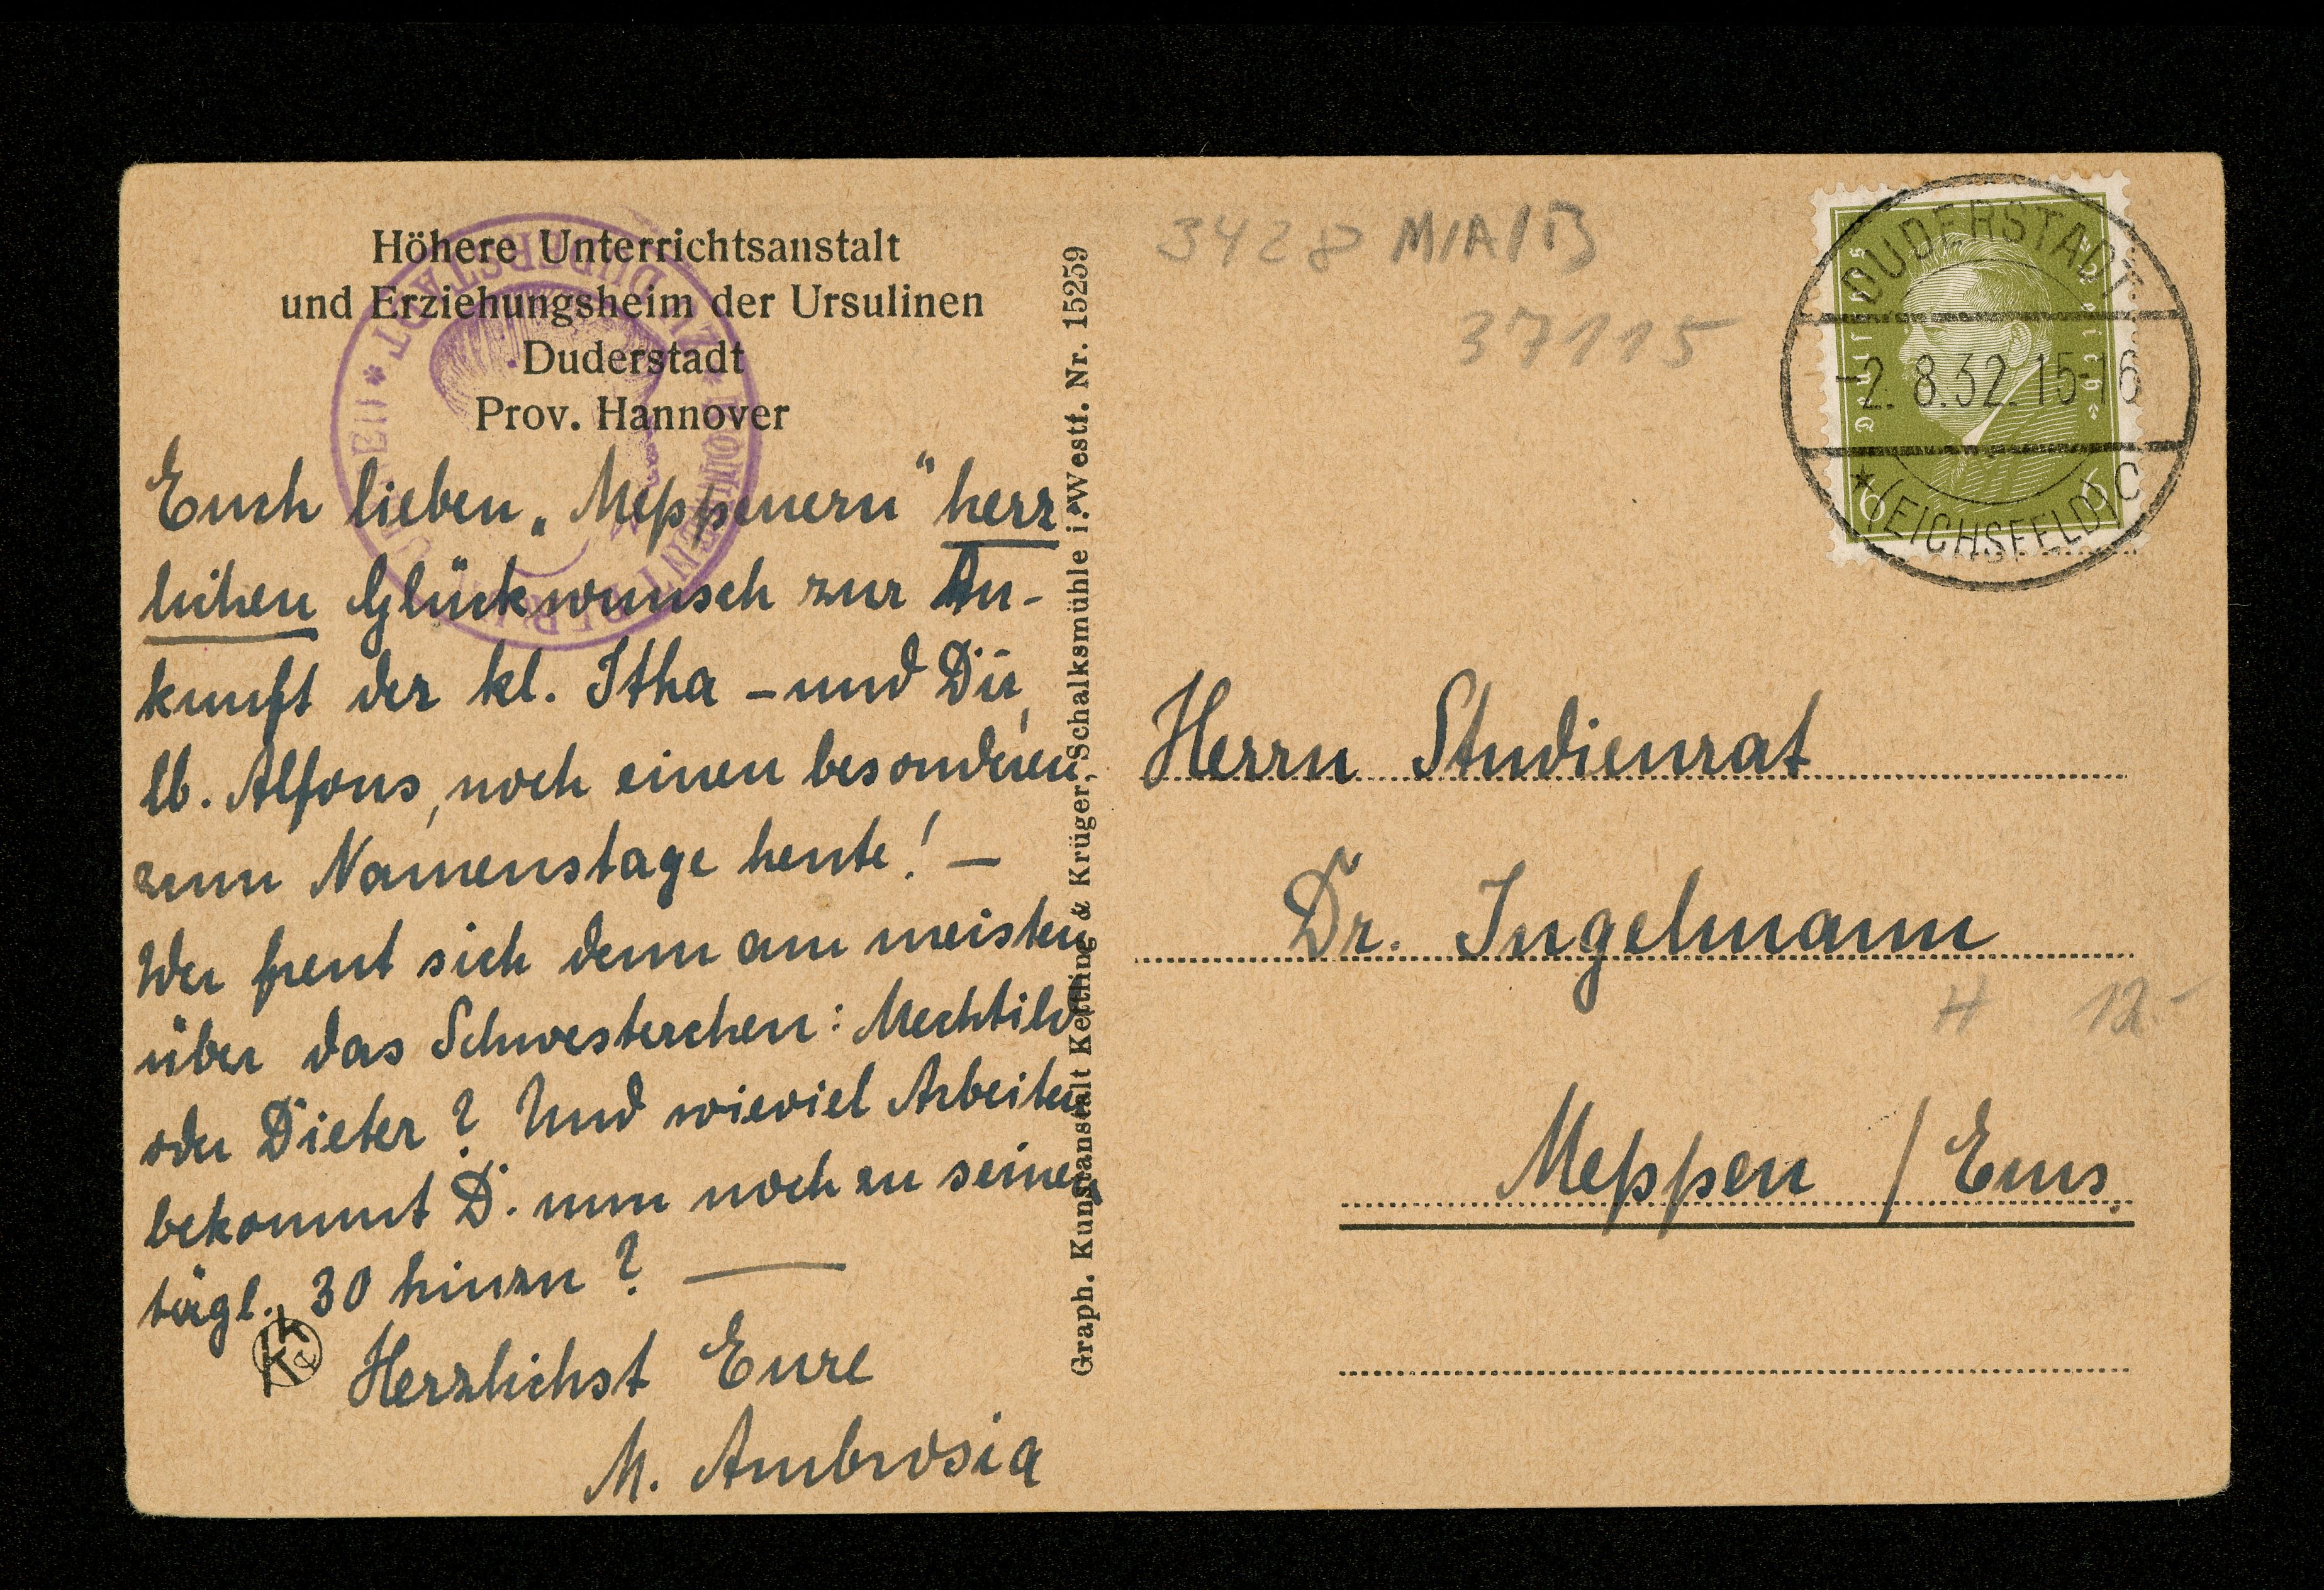 Höhere Unterrichtsanstalt
und Erziehungsheim der Ursulinen
Duderstadt
Prov. Hannover
Euch lieben „Meppenern" herz
lichen Glückwunsch zur An-
kunft der kl. Itha – und Dir,
lb. Alfons, noch einen besonderen
zum Namenstage heute! –
Wer freut sich denn am meisten
über das Schwesterchen: Mechtild
oder Dieter? Und wieviel Arbeiten
bekommt D. nun noch zu seinen
tägl. 30 hinzu? —
Herzlichst Eure
M. Ambrosia
Graph. Kunstanstalt Kettling & Krüger, Schalksmühle i. Westf. Nr. 15259
3428 M/A/B
37115
Deutsches Reich
6 6
DUDERSTADT
-2.8.32.15-16
* (EICHSFELD) C
Herrn Studienrat
Dr. Ingelmann
H 12.-
Meppen / Ems.